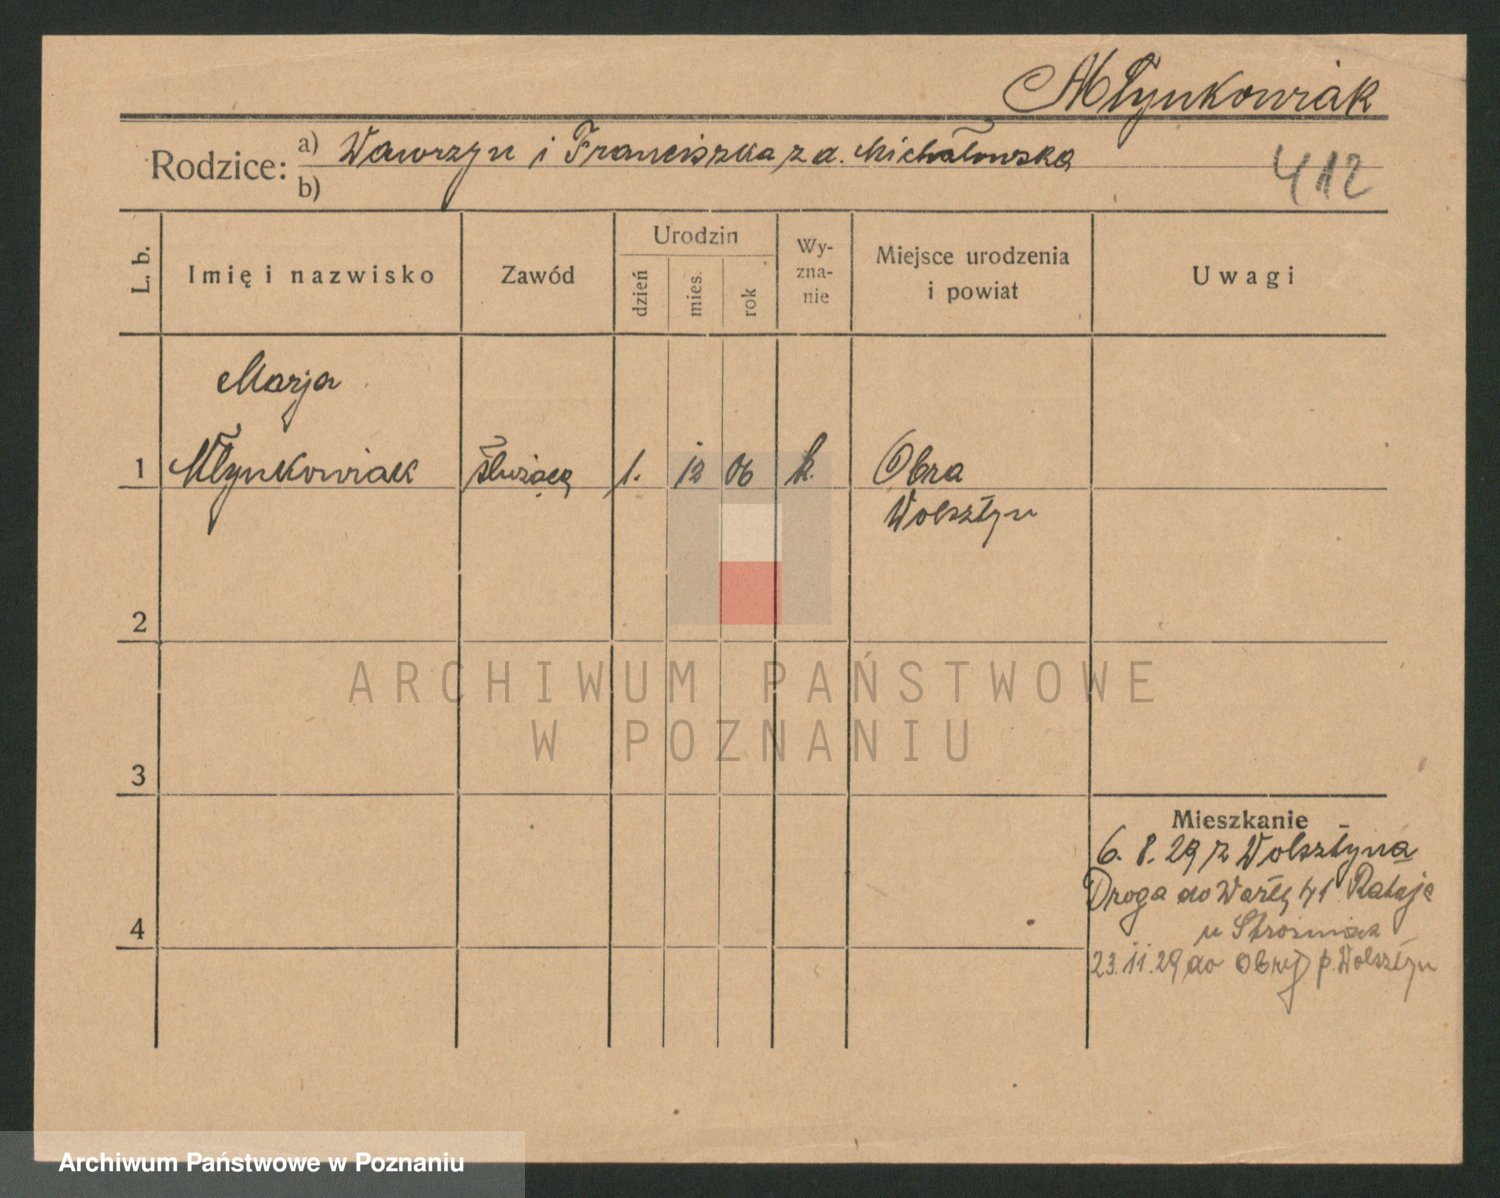 Młynkowiak
Rodzice: a) Wawrzyn i Franciszka z d. Michałowska
b)
412
L. b. Imię i nazwisko Zawód Urodzin dzień mies. rok Wy-zna-nie Miejsce urodzenia i powiat Uwagi
Marja
1 Młynkowiak służąca 1. 12 06 k. Obra
Wolsztyn
2
ARCHIWUM PAŃSTWOWE
W POZNANIU
3
Mieszkanie
6. 8. 29 z Wolsztyna
Droga do Warty 41 Rataje
u
4
23. 11. 29 do Obry p. Wolsztyn
Archiwum Państwowe w Poznaniu